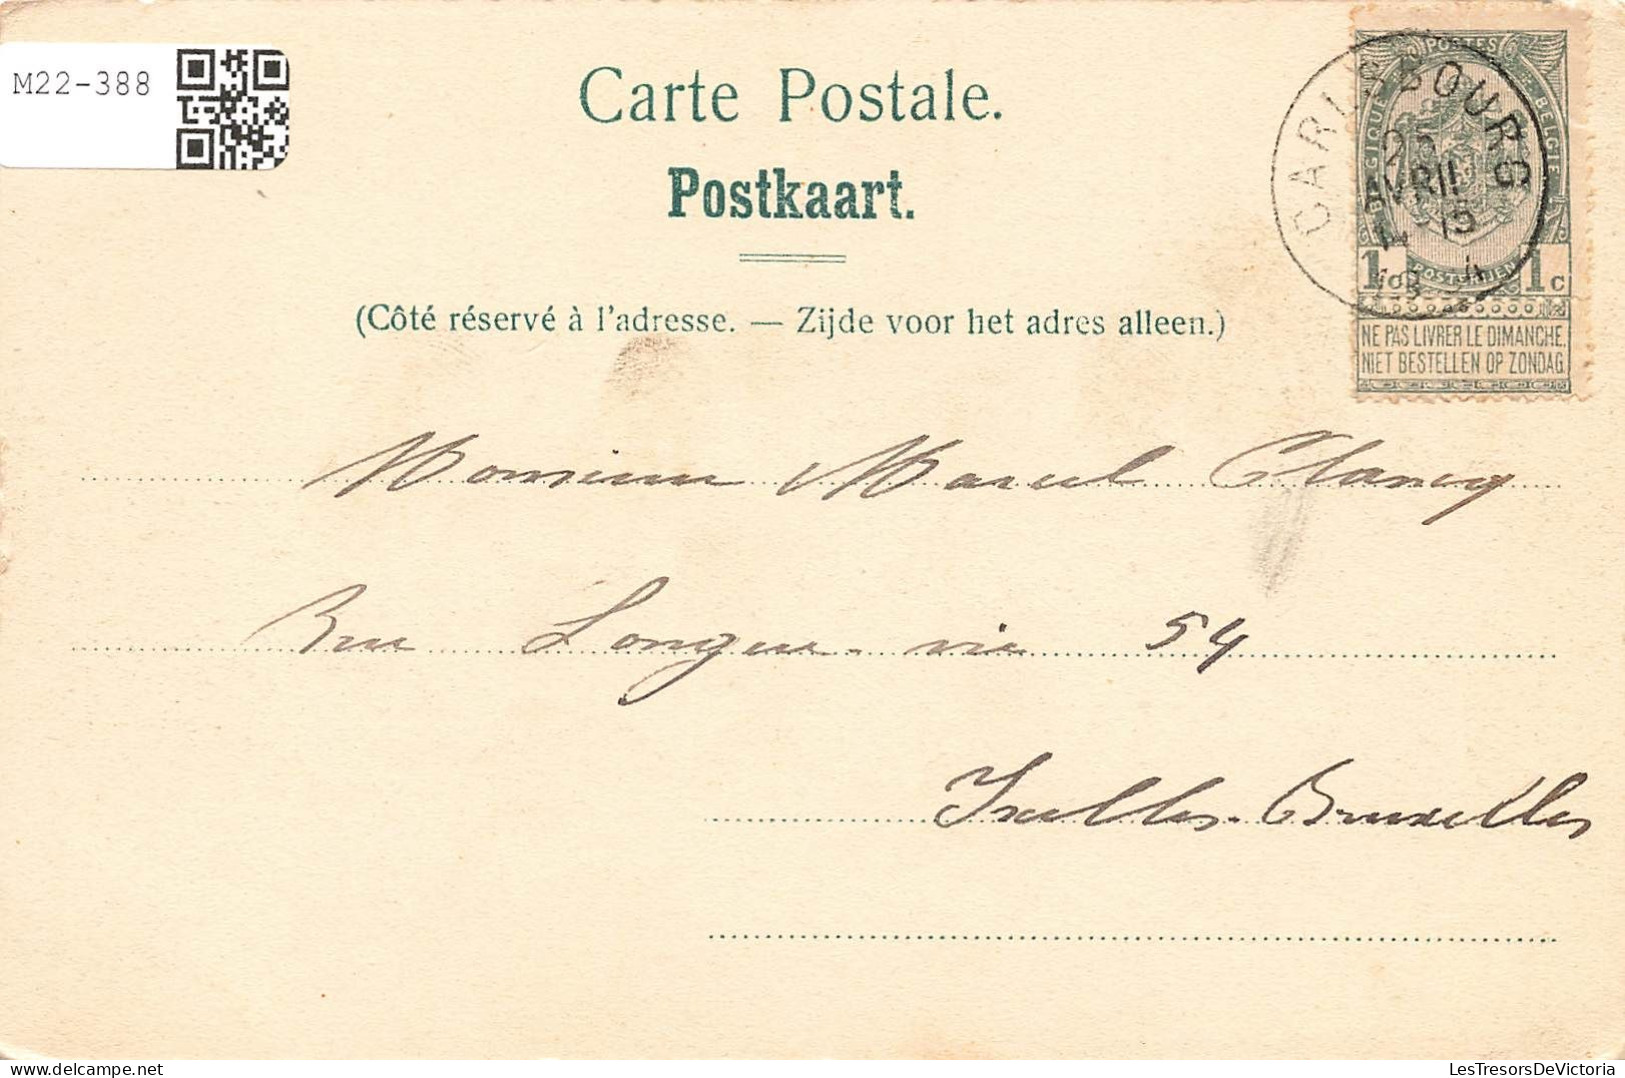 M22-388
Carte Postale.
Postkaart.
(Côté réservé à l'adresse. — Zijde voor het adres alleen.)
CARLSBOURG
AVRIL
POSTES
BELGIQUE
BELGIE
POSTERIJEN
1c 1c
NE PAS LIVRER LE DIMANCHE.
NIET BESTELLEN OP ZONDAG
Monsieur Marcel
Rue Longue-vie 54
Ixelles-Bruxelles
LesTresorsDeVictoria
delcampe.net